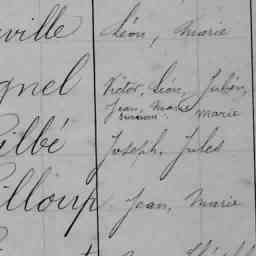 ville Léon, Marie
gnel Victor, Léon, Julien,
Jean, Marie Marie
ilbé Joseph, Jules
illoup Jean, Marie